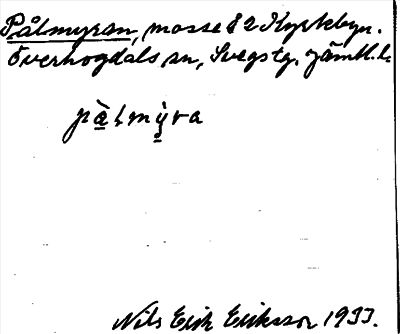 Pålmyran, mosse å 2 Kyrkbyn.
Överhogdals sn, Svegs tg, Jämtl. l.
pà̱lmỳ̱ra
Nils Erik Eriksson 1933.